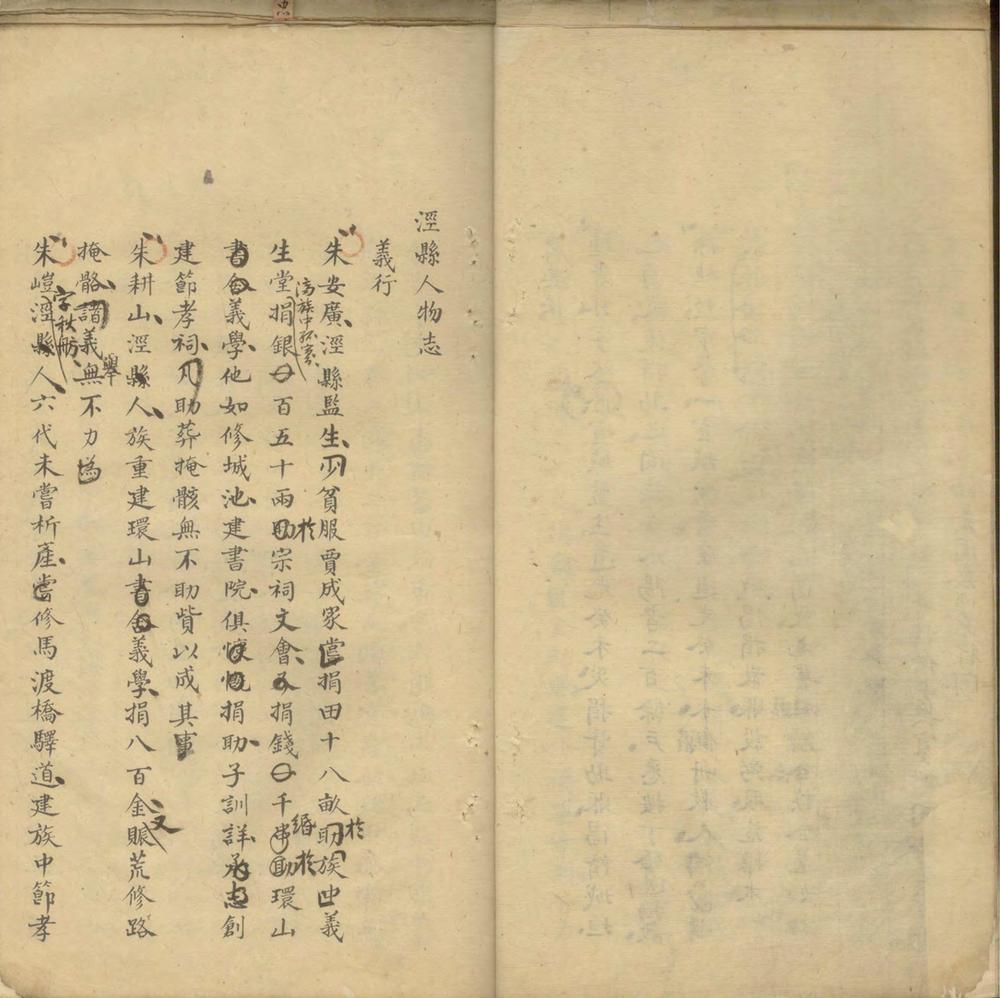 涇縣人物志
義行
朱安廣涇縣監生少貧服賈成家嘗捐田十八畝助族中義
於
生堂捐銀一百五十兩助宗祠文會又捐錢一千串助環山
濟族中孤寡
於
緡
於
書舍義學他如修城池建書院俱慷慨捐助子訓詳承志創
建節孝祠凡助葬掩骸無不助貲以成其事
朱耕山涇縣人族重建環山書舍義學捐八百金賑荒修路
又
掩骼諸義無不力為
舉
朱嵦涇縣人六代未嘗析產嘗修馬渡橋驛道建族中節孝
字秋舫
忠